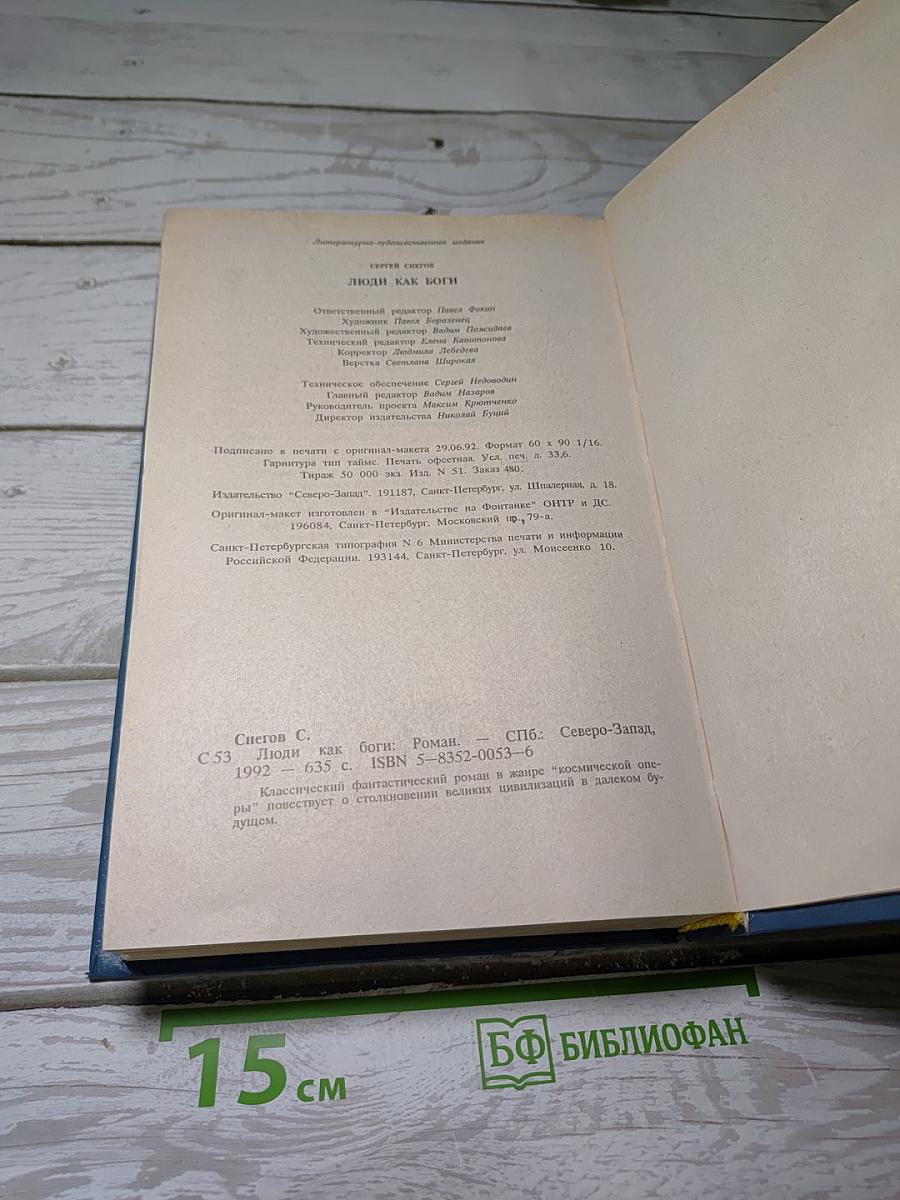 Литературно-художественное издание
СЕРГЕЙ СНЕГОВ
ЛЮДИ КАК БОГИ
Ответственный редактор Павел Фокин
Художник Павел Борозенец
Художественный редактор Вадим Пожидаев
Технический редактор Елена Капитонова
Корректор Людмила Лебедева
Верстка Светлана Широкая
Техническое обеспечение Сергей Недоводин
Главный редактор Вадим Назаров
Руководитель проекта Максим Крютченко
Директор издательства Николай Буций
Подписано к печати с оригинал-макета 29.06.92. Формат 60 x 90 1/16.
Гарнитура тип таймс. Печать офсетная. Усл. печ. л. 33,6.
Тираж 50 000 экз. Изд. N 51. Заказ 480.
Издательство "Северо-Запад". 191187, Санкт-Петербург, ул. Шпалерная, д. 18.
Оригинал-макет изготовлен в "Издательстве на Фонтанке" ОНТР и ДС.
196084, Санкт-Петербург. Московский пр., 79-а.
Санкт-Петербургская типография N 6 Министерства печати и информации
Российской Федерации. 193144, Санкт-Петербург, ул. Моисеенко 10.
Снегов С.
С 53 Люди как боги: Роман. — СПб.: Северо-Запад,
1992 — 635 с. ISBN 5—8352-0053—6
Классический фантастический роман в жанре "космической опе-
ры" повествует о столкновении великих цивилизаций в далеком бу-
дущем.
15 см
БФ БИБЛИОФАН